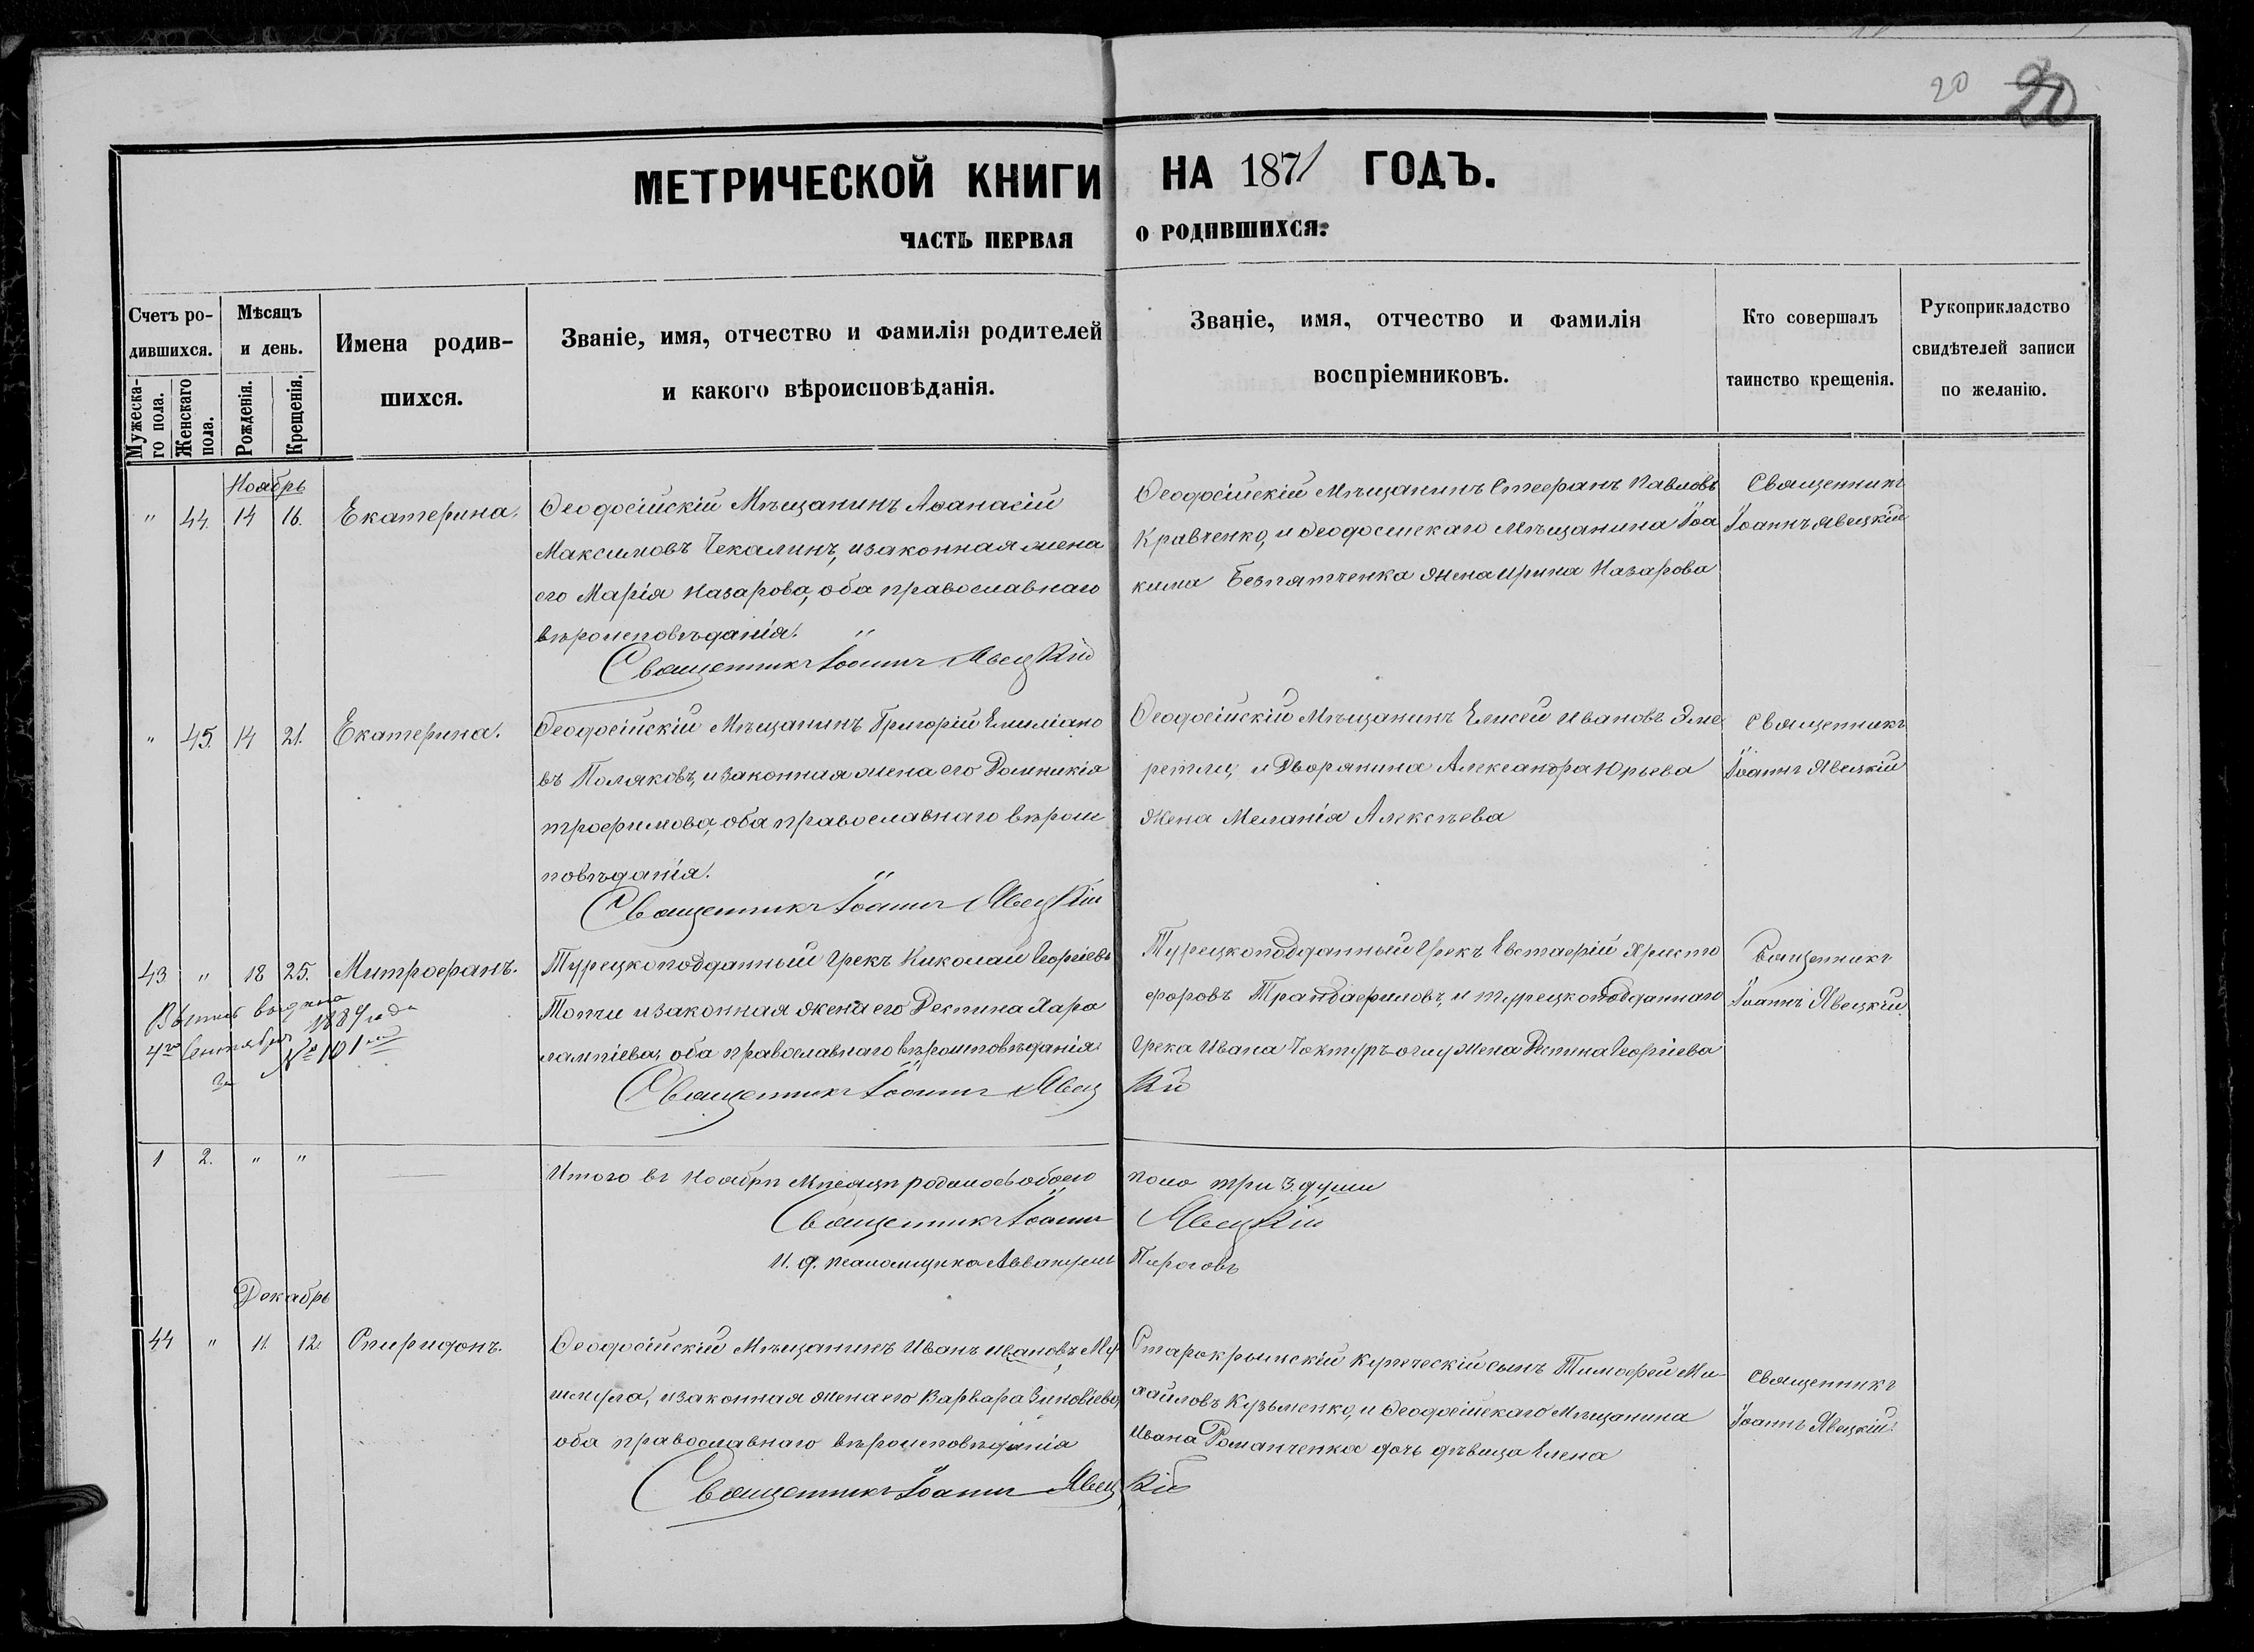 20 20
МЕТРИЧЕСКОЙ КНИГИ НА 1871 ГОДЪ.
ЧАСТЬ ПЕРВАЯ О РОДИВШИХСЯ:
Счетъ ро-
дившихся.
Мужеска-
го пола.
Женскаго
пола.
Мѣсяцъ
и день.
Рожденія.
Крещенія.
Имена родив-
шихся.
Званіе, имя, отчество и фамилія родителей
и какого вѣроисповѣданія.
Званіе, имя, отчество и фамилія
воспріемниковъ.
Кто совершалъ
таинство крещенія.
Рукоприкладство
свидѣтелей записи
по желанію.
Ноябрь
" 44. 14 16. Екатерина.
Ѳеодосійскій Мѣщанинъ Аѳанасій
Максимовъ Чекалинъ, и законная жена
его Марія Назарова, оба православнаго
вѣроисповѣданія.
Священникъ Іоаннъ Явецкій
Ѳеодосійскій Мѣщанинъ Стефанъ Павловъ
Кравченко, и Ѳеодосійскаго Мѣщанина Іоа
кима Безпятченка жена Ирина Назарова
Священникъ
Іоаннъ Явецкій
" 45. 14 21. Екатерина.
Ѳеодосійскій Мѣщанинъ Григорій Емиліано
въ Поляковъ, и законная жена его Домникія
трофимова, оба православнаго вѣроис
повѣданія.
Священникъ Іоаннъ Явецкій
Ѳеодосійскій Мѣщанинъ Елисей Ивановъ Эме
ретли, и Дворянина Александра Юрьева
жена Меланія Алексѣева
Священникъ
Іоаннъ Явецкій
43 " 18 25. Митрофанъ.
Выпись выдана
4го Сентября 1889 года
за № 101
Турецкоподданный Грекъ Николай Георгіевъ
Топчи и законная жена его Деспина Хара
лампіева, оба православнаго вѣроисповѣданія
Священникъ Іоаннъ Явецкій
Турецкоподданный Грекъ Евстафій Христо
форовъ Трандафиловъ, и турецкоподданнаго
Грека Ивана Чоктуръ-оглу жена Деспина Георгіева
Священникъ
Іоаннъ Явецкій
1 2. " "
Итого въ Ноябрѣ Мѣсяцѣ родилось обоего пола три 3. души
Священникъ Іоаннъ Явецкій
И. д. псаломщика Аввакумъ Пироговъ
Декабрь
44 " 11. 12. Спиридонъ.
Ѳеодосійскій Мѣщанинъ Иванъ Ивановъ
и законная жена его Варвара Зиновіева,
оба православнаго вѣроисповѣданія
Священникъ Іоаннъ Явецкій
Старокрымскій купеческій сынъ Тимофей Ми
хайловъ Кузьменко, и Ѳеодосійскаго Мѣщанина
Ивана Романченка дочь дѣвица Елена
Священникъ
Іоаннъ Явецкій